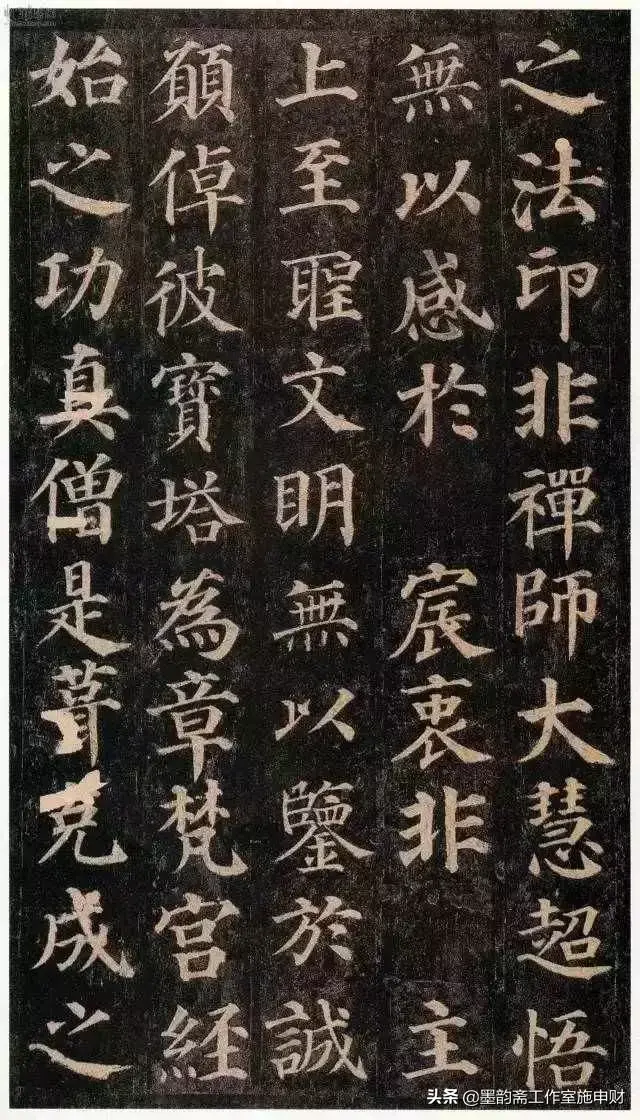 之法印非禪師大慧超悟
無以感於 宸衷非 主
上至聖文明無以鑒於誠
願倬彼寶塔為章梵宮経
始之功真僧是葺克成之
头条 @墨韵斋工作室施申财